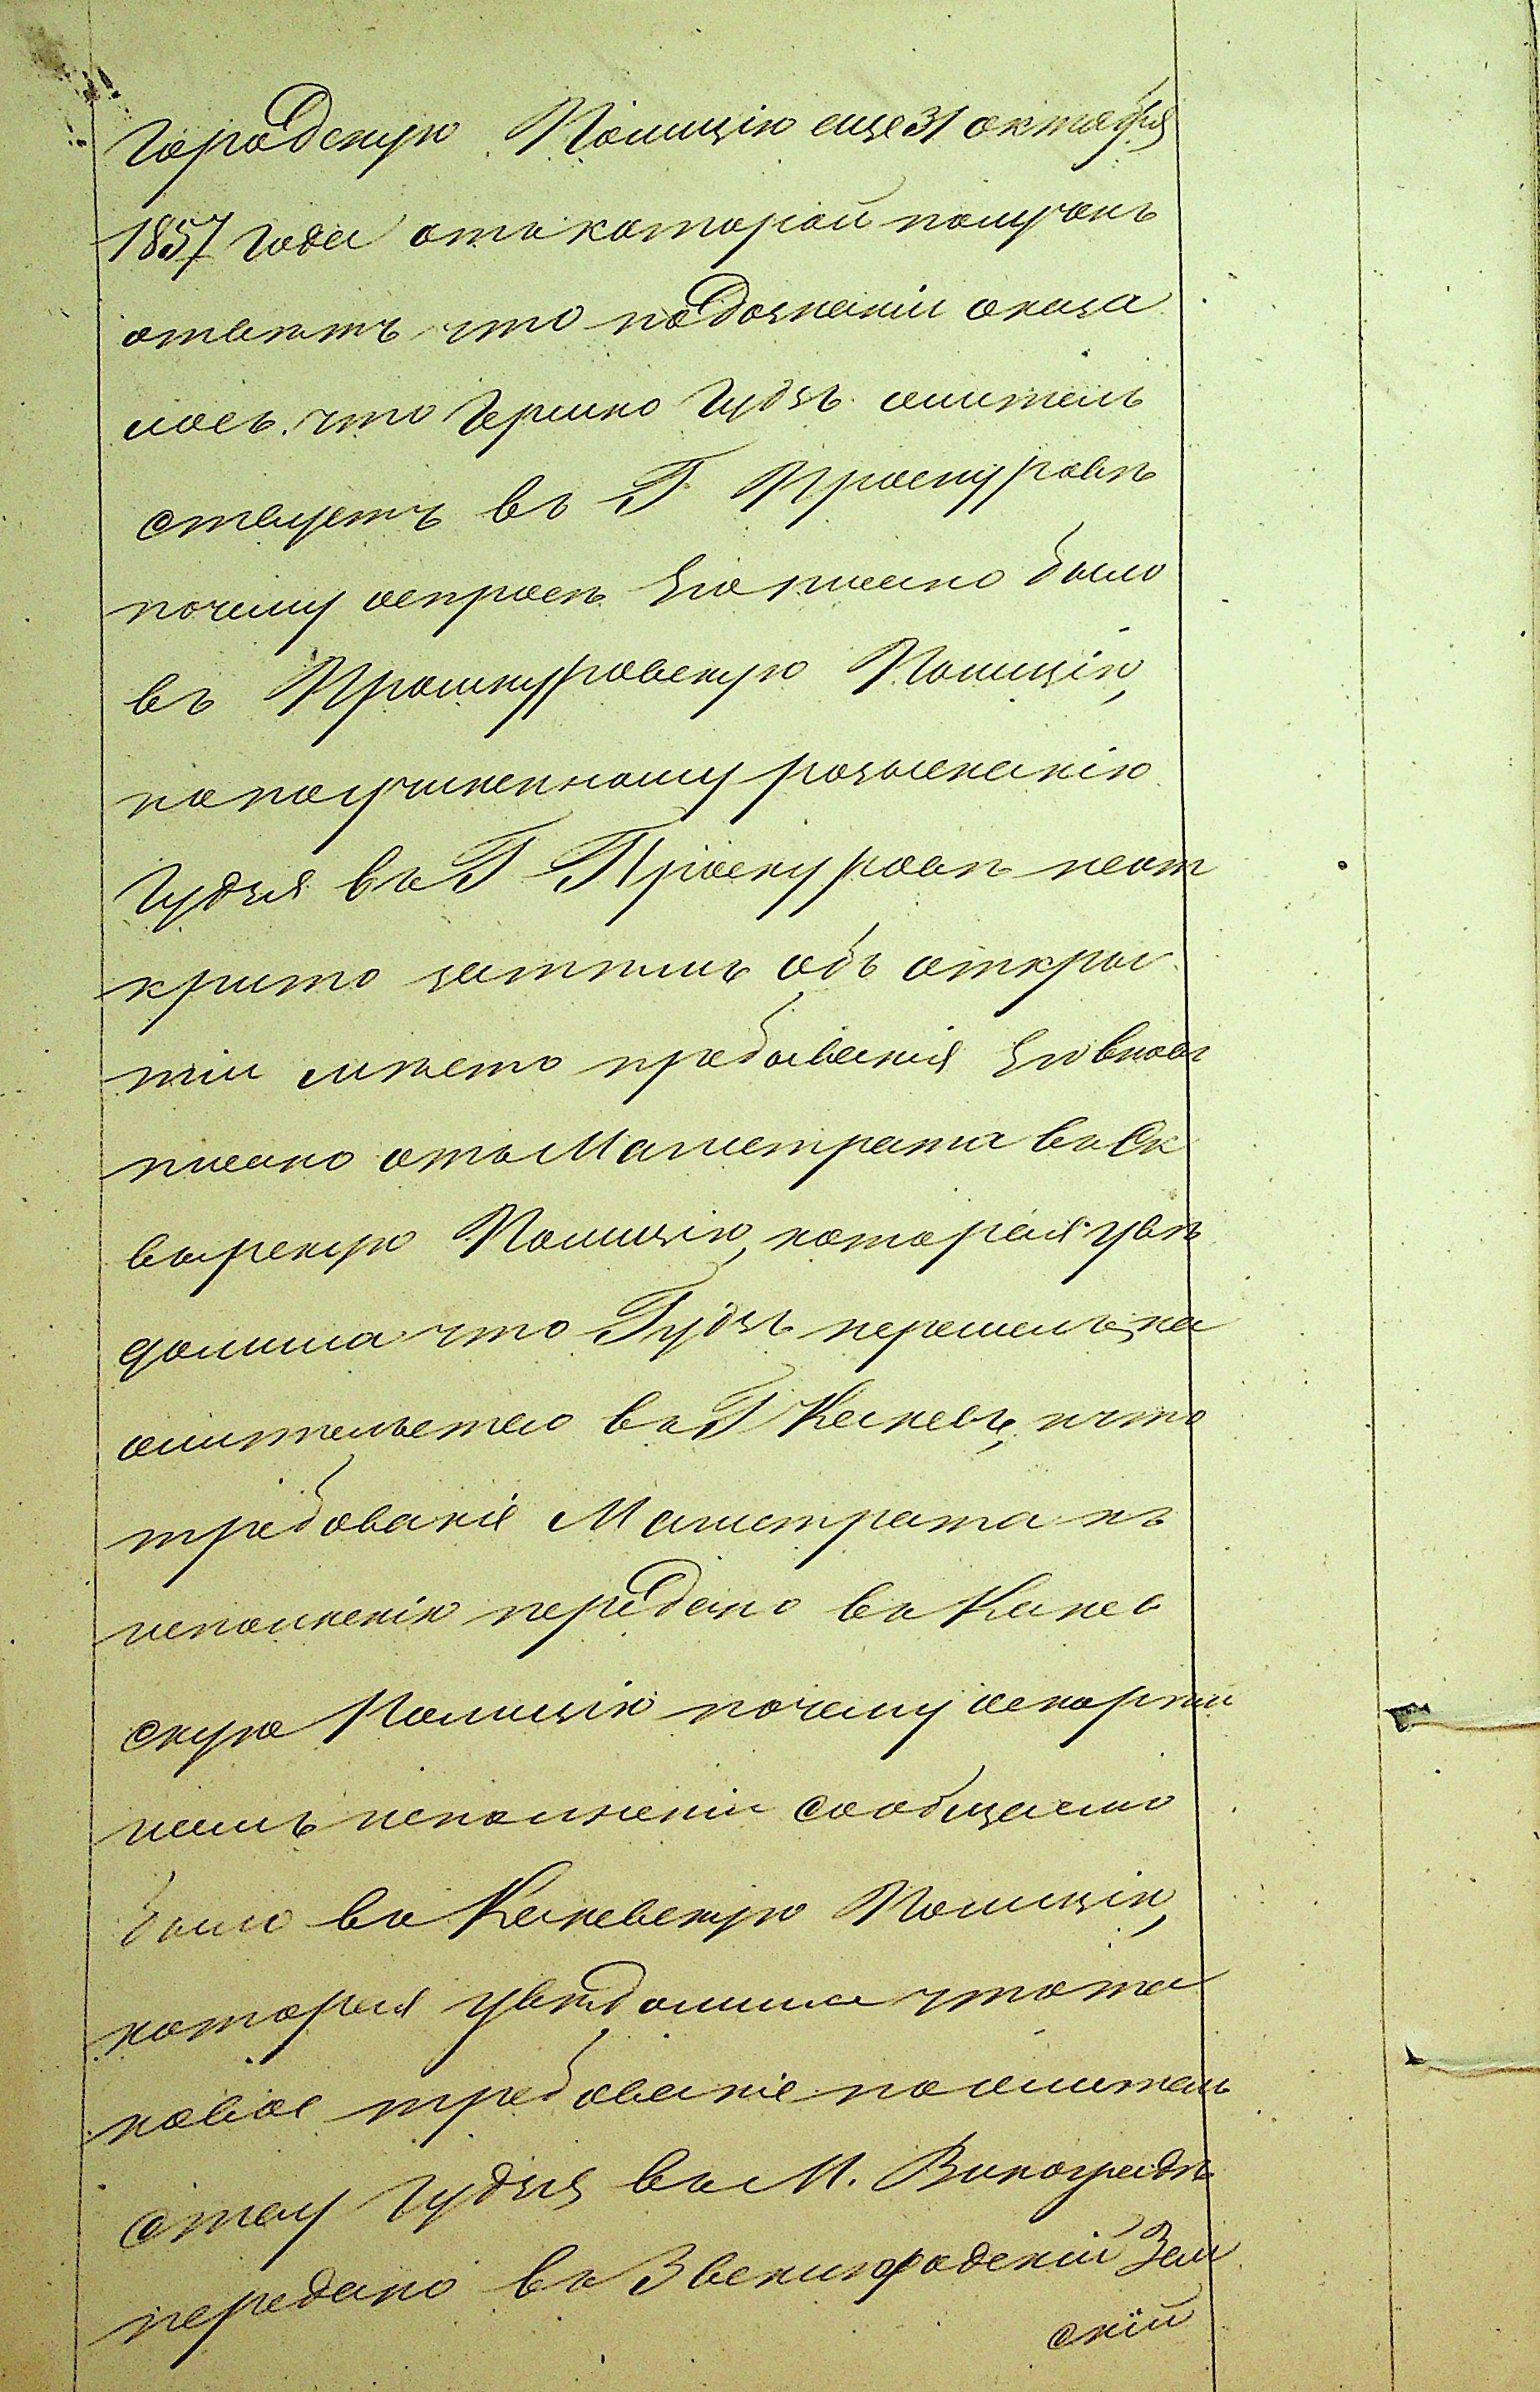 Городскую Полицію еще 31 октября
1857 года отъ которой полученъ
ответъ что подознаніи оказа
лось что Гершко Гудзь жител
ствуетъ въ Г Проскуровѣ
почему о спросѣ его писано было
въ Проскуровскую Полицію,
но по учиненному розысканію
Гудзя въ Г Проскуровѣ неот
крыто затѣмъ объ откры
тіи место пребыванія его вновь
писано отъ Магистрата въ Ск
вырскую Полицію, которая увѣ
домила что Гудзь перешелъ на
жительство въ Г Каневъ, и что
требованіе Магистрата къ
исполненію передано въ Канев
скую Полицію почему о скорѣй
шемъ исполненіи сообщаемо
было въ Каневскую Полицію,
которая увѣдомила что та
ковое требованіе по жител
ству Гудзя въ М. Виноградѣ
передано въ Звенигородскій Зем
скій